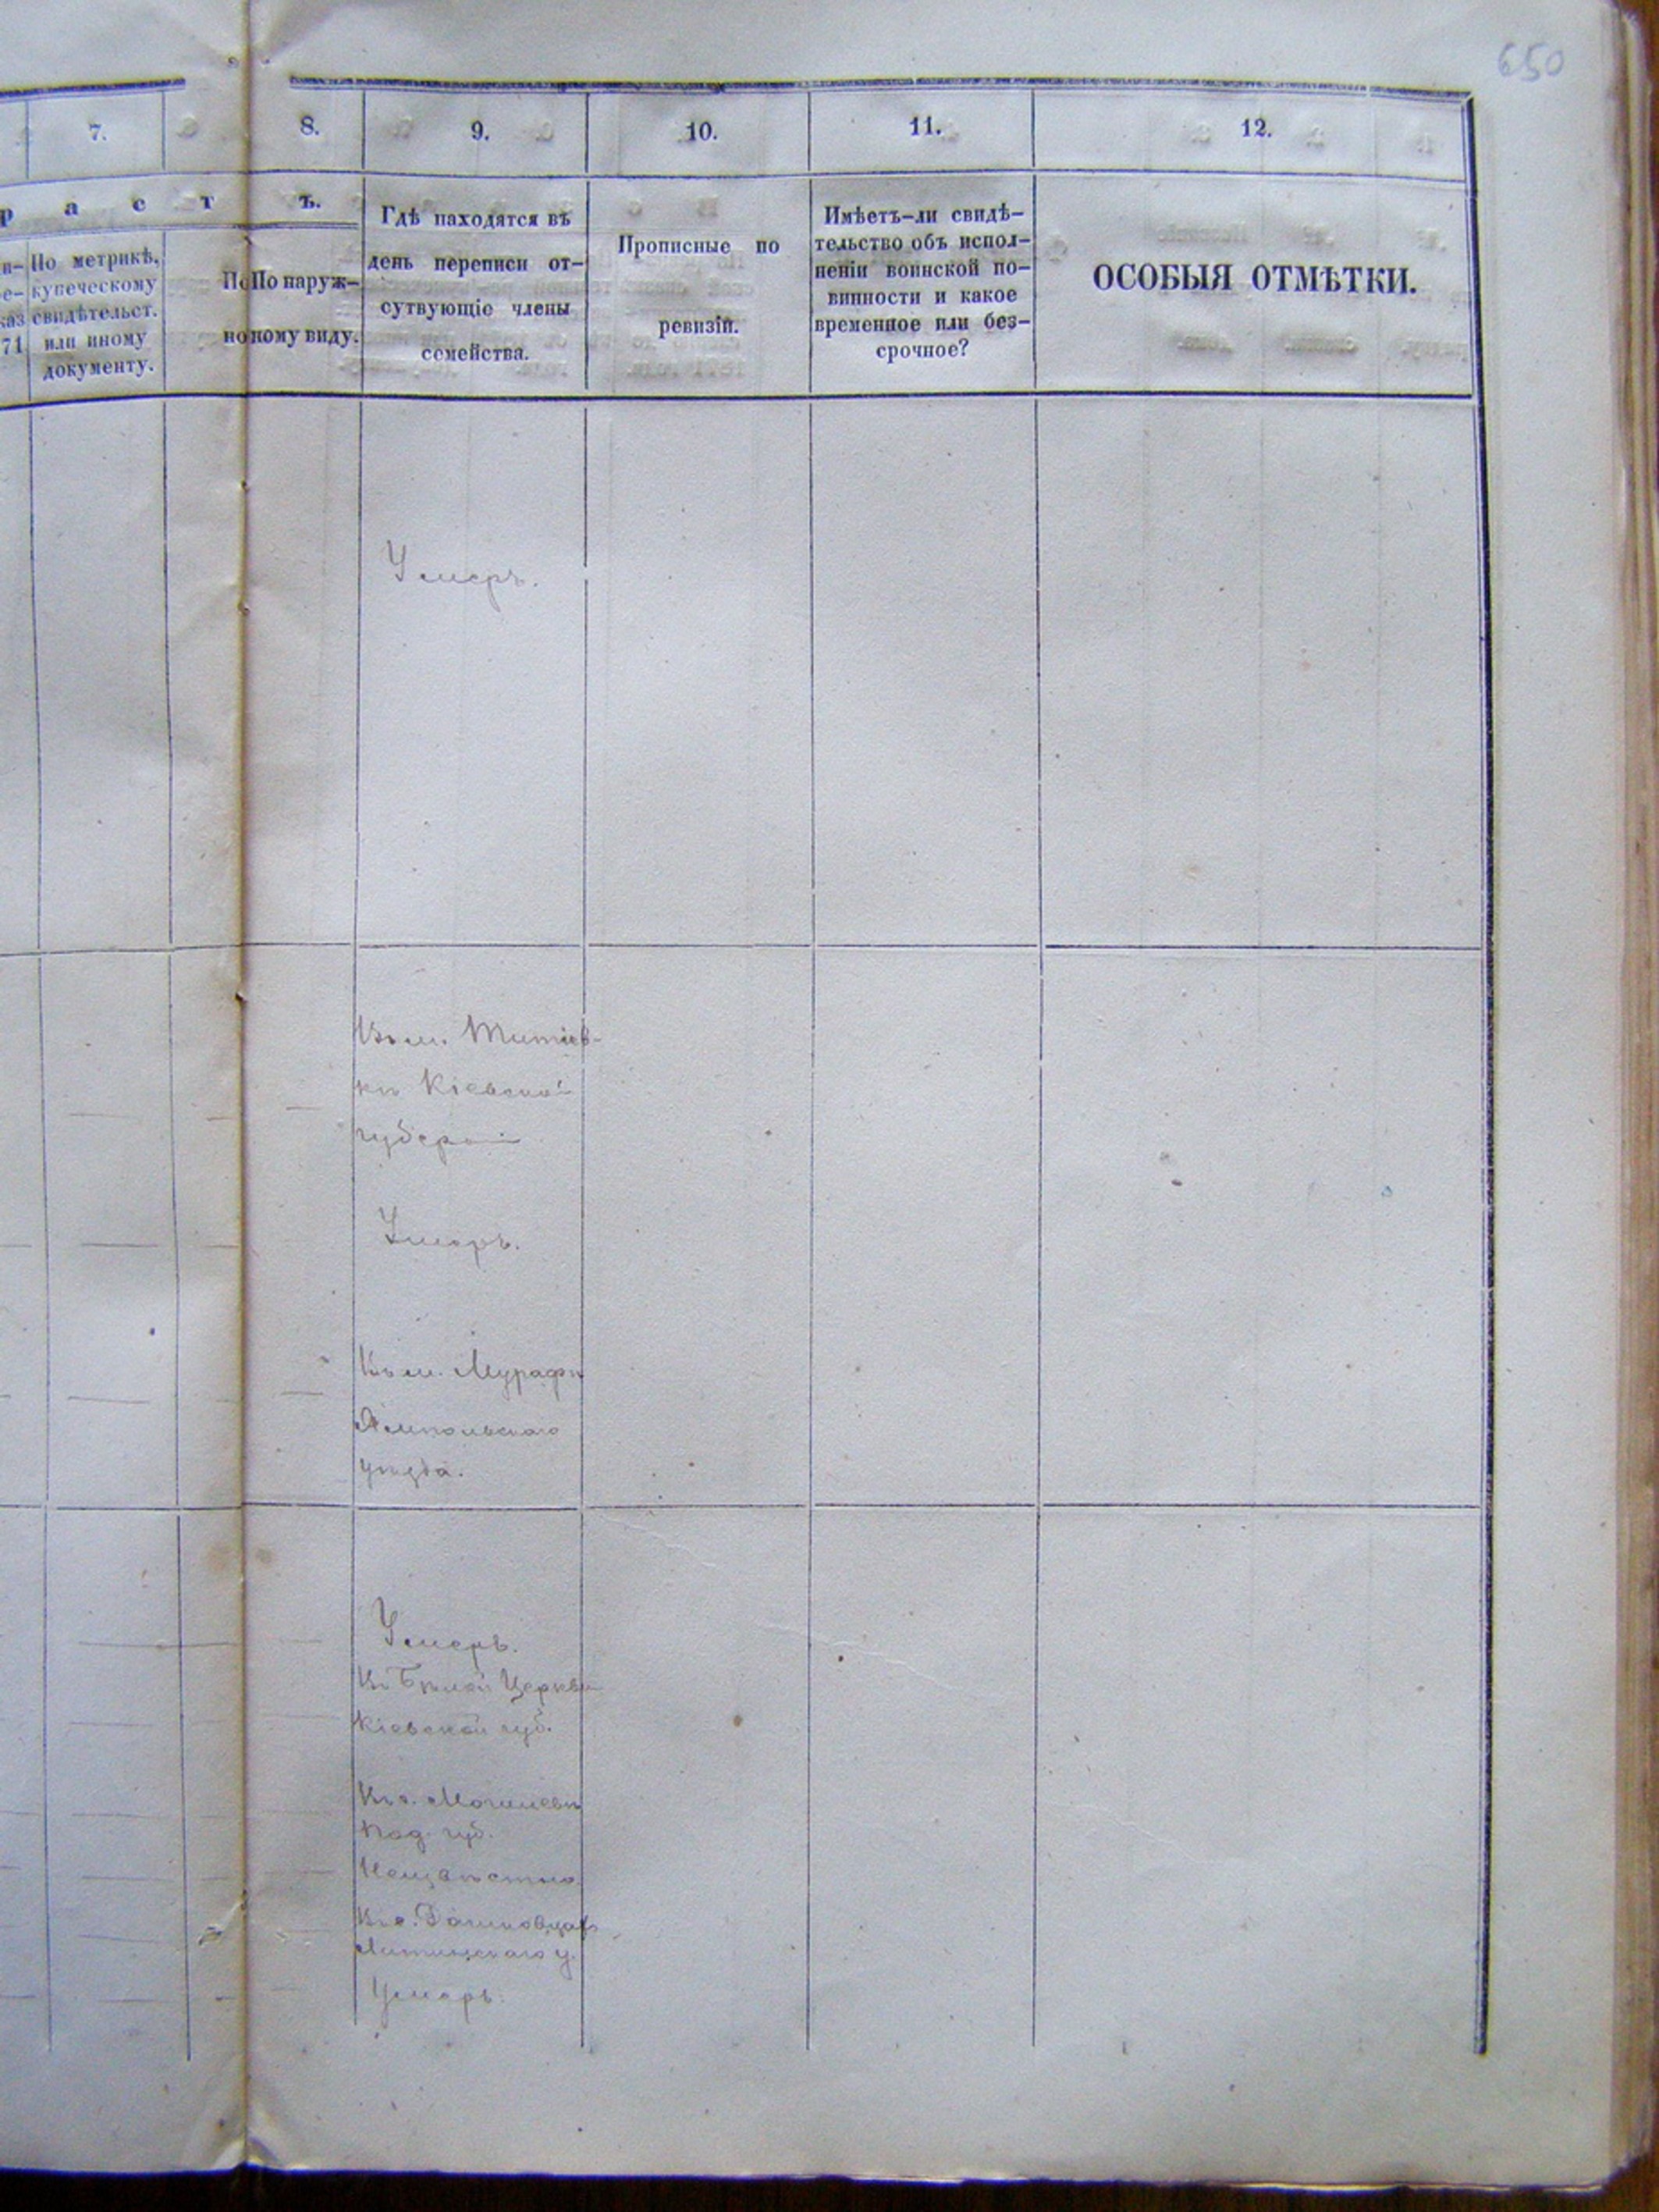 650
7.
8.
9.
10.
11.
12.
р а с т ъ.
По метрикѣ,
купеческому
свидѣтельст.
или иному
документу.
71
По наруж-
ному виду.
Гдѣ находятся въ
день переписи от-
сутвующіе члены
семейства.
Прописные по
ревизіи.
Имѣетъ-ли свидѣ-
тельство объ испол-
неніи воинской по-
винности и какое
временное или без-
срочное?
ОСОБЫЯ ОТМѢТКИ.
Умеръ.
Въ м. Титіев-
кѣ Кіевской
губерніи
Умеръ.
Въ м. Мурафѣ
Ямпольскаго
уѣзда.
Умеръ.
Въ Бѣлой Церкви
Кіевской губ.
Въ г. Могилевѣ
Под. губ.
Неизвѣстно.
Въ с.
Литинскаго у.
Умеръ.